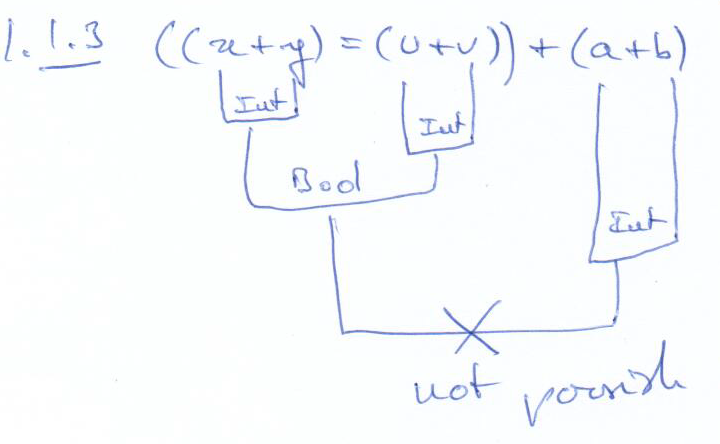 1.1.3 ((x+y) = (u+v)) + (a+b)
Int
Int
Bool
Int
not possible